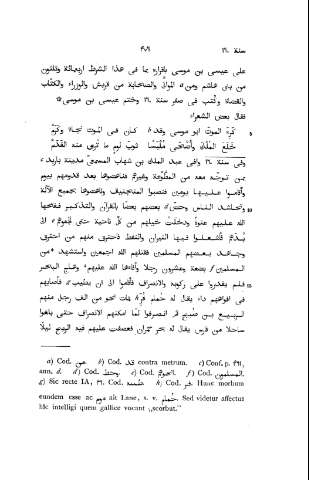 سنة ١٦٠ ٤٦٩
على عيسى بن موسى باقراره بما فى هذا الشرط اربعمائة وثلثون
من بنى هاشم ومن الموالى والصحابة من قريش والوزراء والكتّاب
والقضاة وكتب فى صفر سنة ١٦٠ وختم عيسى بن موسى
فقال بعض الشعراء
كره الموت ابو موسى وقد كان فى الموت نجاء وكرم
خلع الملك وأضحى ملبسا ثوب لوم ما ترى منه القدم
وفى سنة ١٦٠ وافى عبد الملك بن شهاب المسمعى مدينة باربد
بمن توجّه معه من المطّوّعة وغيرهم فناهضوها بعد قدومهم بيوم
وأقاموا عليها يومين فنصبوا المنجنيق وناهضوها بجميع الآلة
وتحاشد الناس وحضّ بعضهم بعضا بالقرآن والتذكير ففتحها
الله عليهم عنوة ودخلت خيلهم من كل ناحية حتى
بدّهم فأشعلوا فيها النيران والنفط فاحترق منهم من احترق
وجاهد بعضهم المسلمين فقتلهم الله اجمعين واستشهد من
المسلمين بضعة وعشرون رجلا وأفاءها الله عليهم وهاج البحر
فلم يقدروا على ركوبه والانصراف فأقاموا الى ان يطيب فأصابهم
فى افواههم داء يقال له حمام قر فمات نحو من الف رجل منهم
الربيع بن صبيح ثم انصرفوا لما امكنهم الانصراف حتى بلغوا
ساحلا من فارس يقال له بحر حمران فعصفت عليهم فيه الريح ليلا
a) Cod. عن. b) Cod. قد contra metrum. c) Conf. p.
ann. d. d) Cod. e) Cod. f) Cod. المسلمون.
g) Sic recte IA, ٣١. Cod. h) Cod. فر. Hunc morbum
eundem esse ac موم ait Lane, s. v. حمام. Sed videtur affectus
hîc intelligi quem gallice vocant „scorbut."